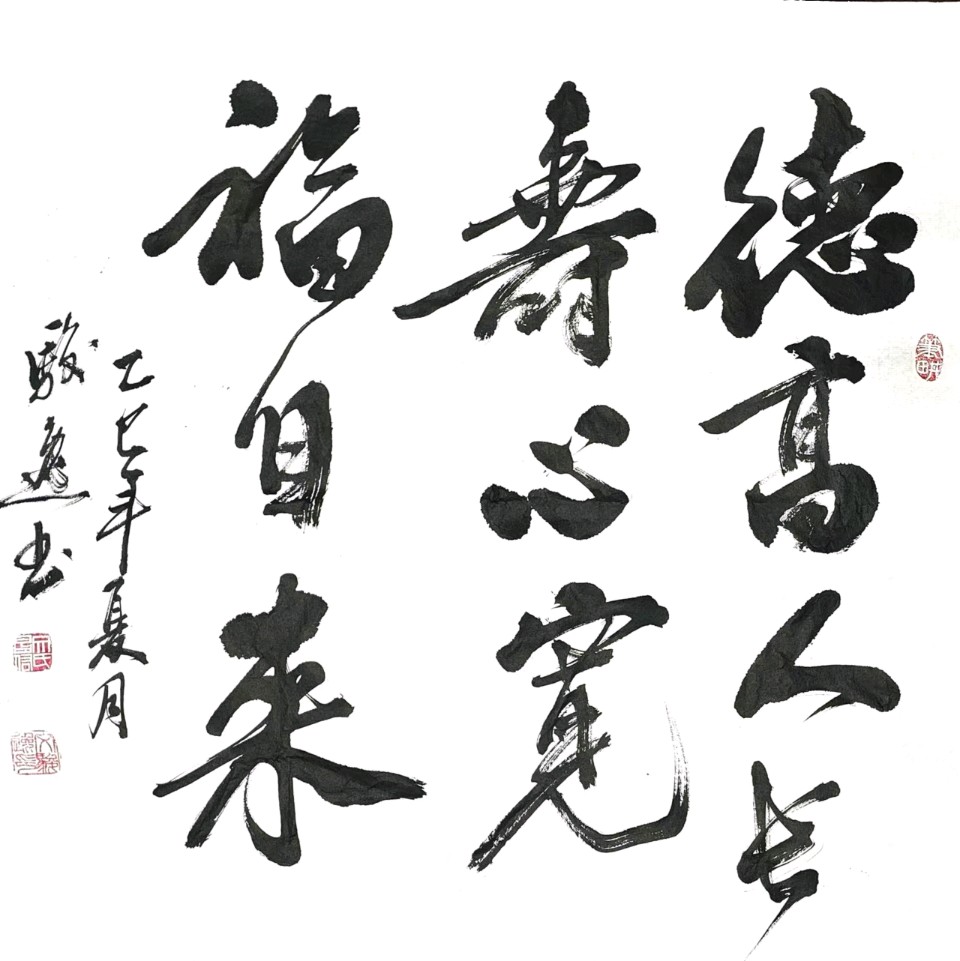 德高人长
寿心宽
福自来
乙巳年夏月
骏逸书